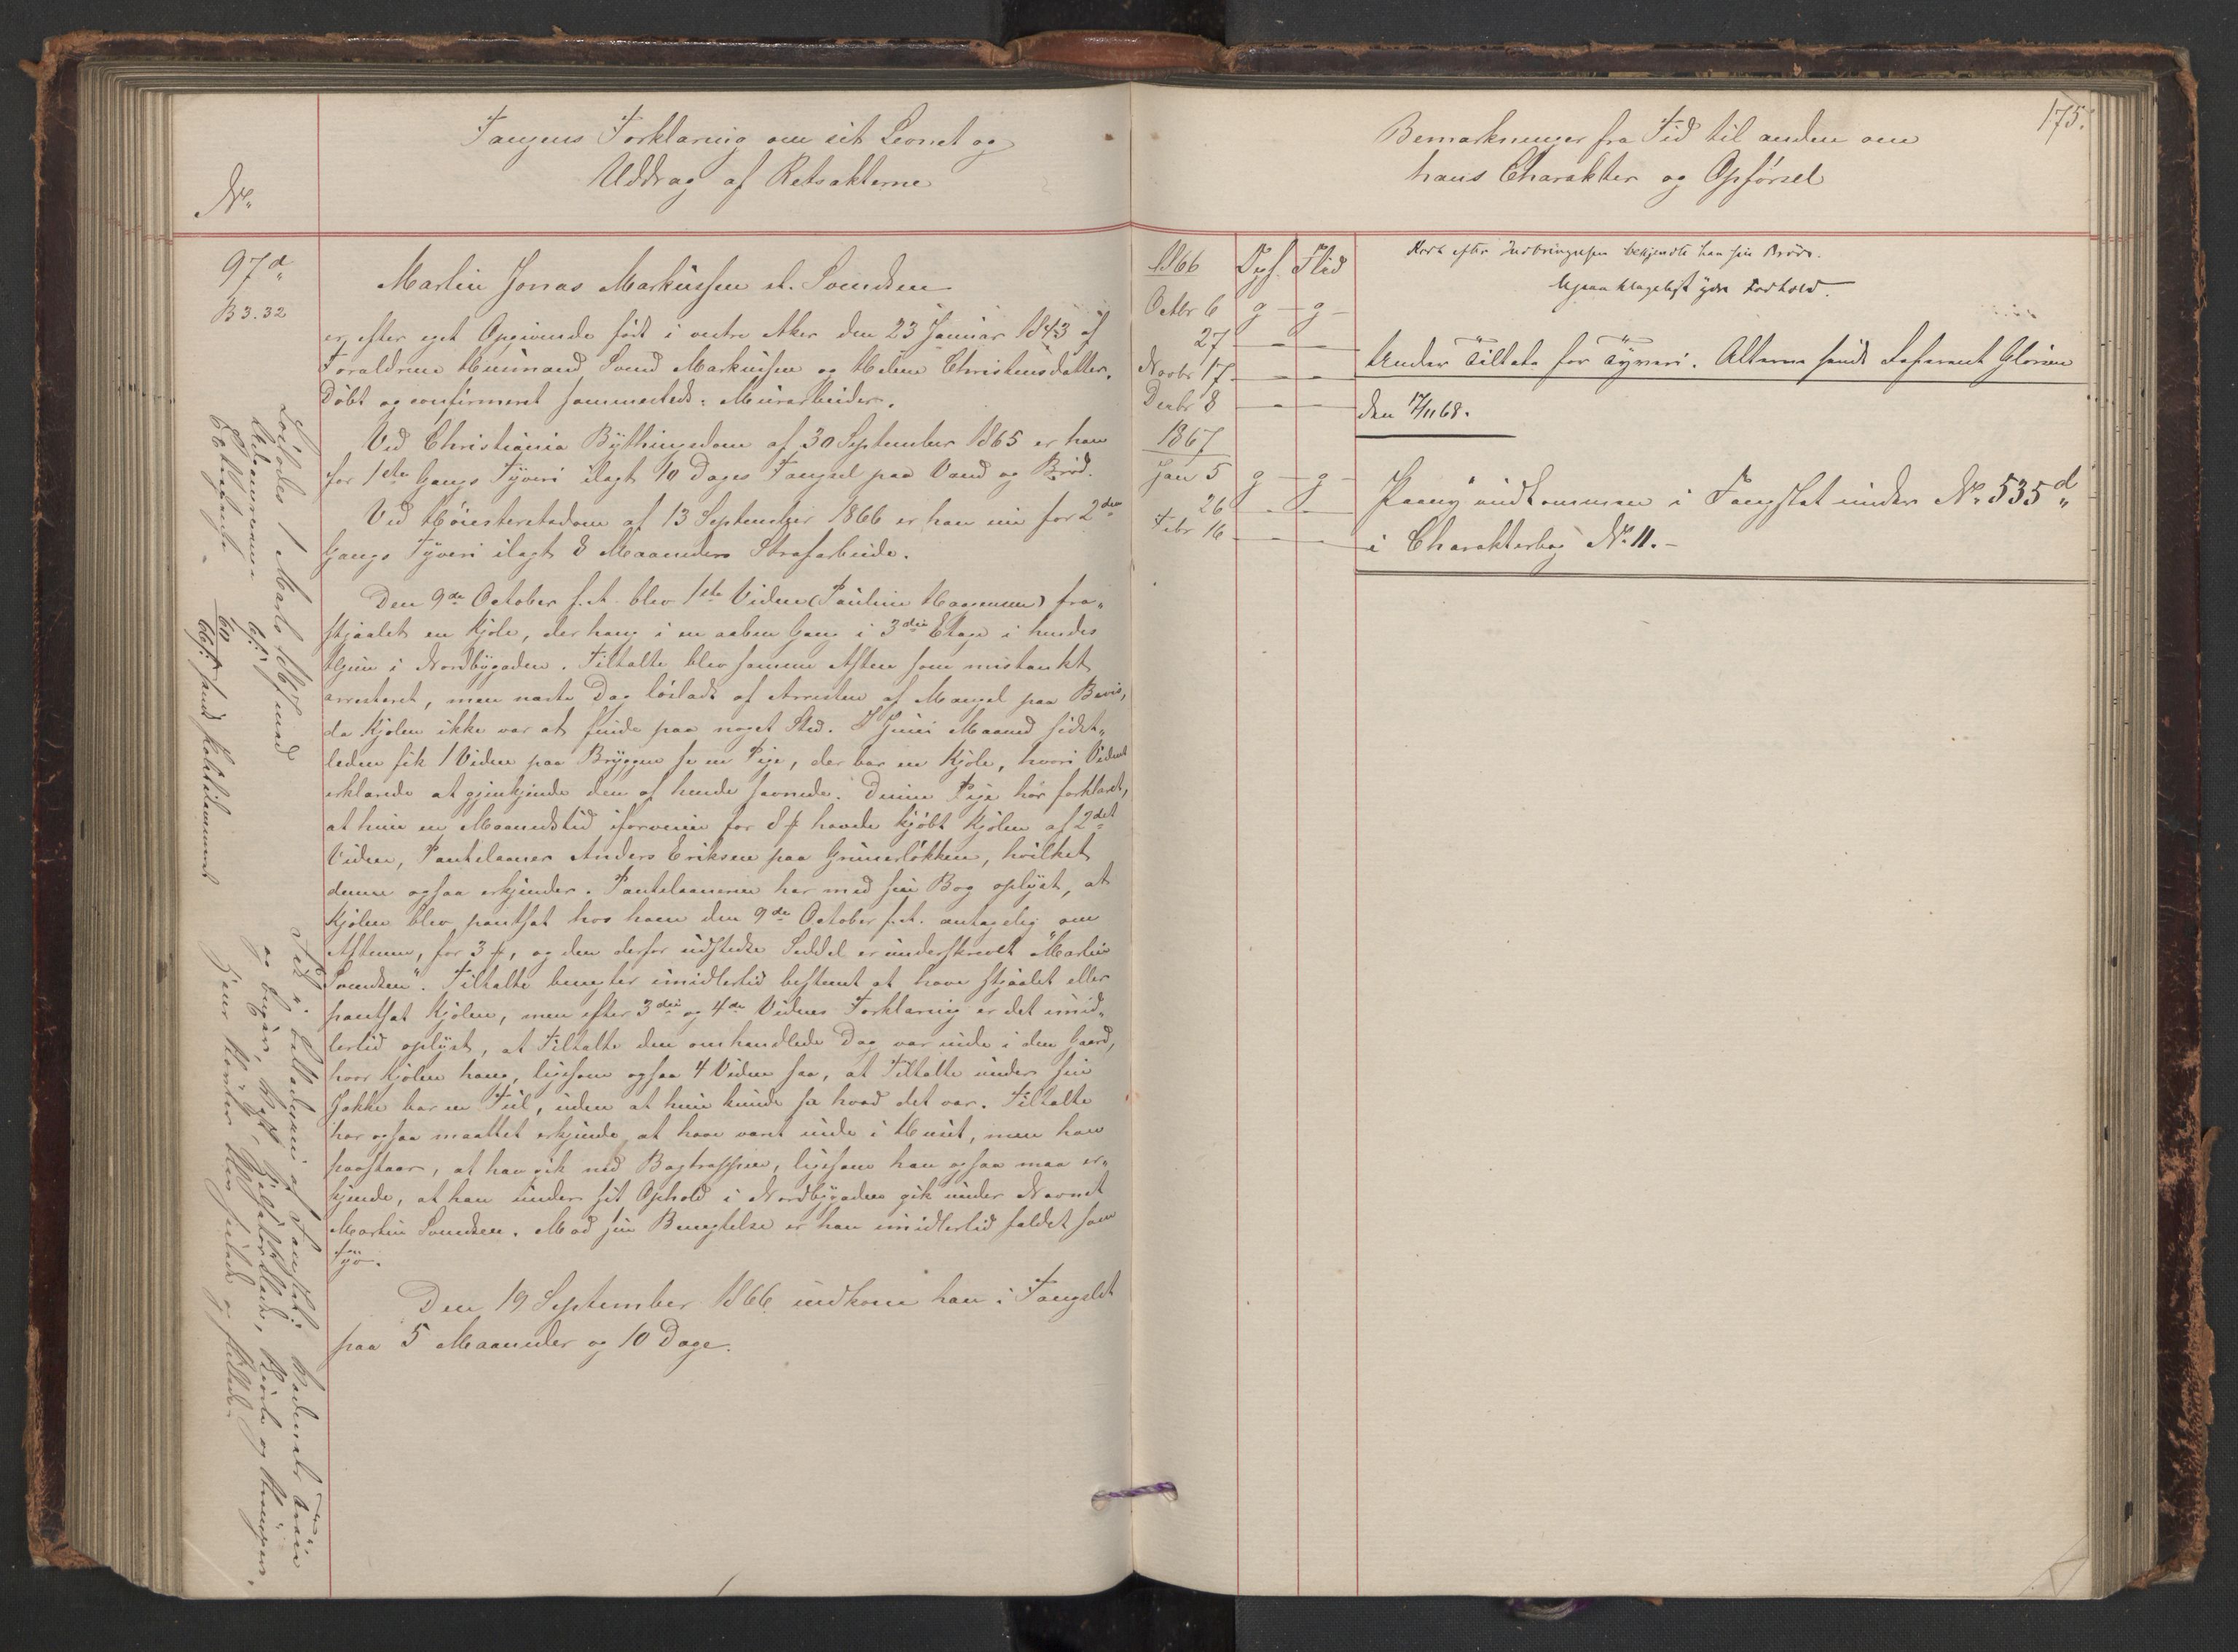 Fangens Forklaring om sit Levnet og
Uddrag af Retsakterne
No
97d
B 3.32
Martin Jonas Markussen el. Svendsen
er, efter eget Opgivende født i vestre Aker den 23 Januar 1843 af
Forældrene Husmand Svend Markussen og Helene Christensdatter.
Døbt og confirmeret sammesteds. Murarbeider.
Ved Christiania Bythingsdom af 30 September 1865 er han
for 1ste Gangs Tyveri ilagt 10 Dages Fængsel paa Vand og Brød.
Ved Høiesteretsdom af 13 September 1866 er han nu for 2den
Gangs Tyveri ilagt 8 Maaneders Strafarbeide.
Den 9de October f. A. blev 1ste Vidne (Pauline Haagensen) fra-
stjaalet en Kjole, der hang i en aaben Gang i 3die Etage i hendes
Hjem i Nordbygaden. Tiltalte blev samme Aften som mistænkt
arresteret, men næste Dag løsladt af Arresten af Mangel paa Bevis,
da Kjolen ikke var at finde paa noget Sted. I Juni Maaned sidst-
leden fik 1 Vidne paa Bryggen se en Pige, der bar en Kjole, hvori Vidnet
erklærede at gjenkjende den af hende savnede. Denne Pige har forklaret,
at hun en Maanedstid iforveien for havde kjøbt Kjolen af 2det
Vidne, Pantelaaner Anders Eriksen paa Grünerløkken, hvilket
denne ogsaa erkjender. Pantelaaneren har med sin Bog oplyst, at
Kjolen blev pantsat hos ham den 9de October f. A. antagelig om
Aftenen, for 3 , og den derfor udstedte Seddel er underskrevet "Martin
Svendsen". Tiltalte benegter imidlertid bestemt at have stjaalet eller
pantsat Kjolen, men efter 3die og 4de Vidnes Forklaring er det imid-
lertid oplyst, at Tiltalte den omhandlede Dag var inde i den Gaard,
hvor Kjolen hang, ligesom ogsaa 4 Vidne saa, at Tiltalte under sin
Jakke bar en Ting, uden at hun kunde se hvad det var. Tiltalte
har ogsaa maattet erkjende at have været inde i Huset, men han
paastaar, at han gik ned Bagtrappen, ligesom han ogsaa maa er-
kjende, at han under sit Ophold i Nordbygaden gik under Navnet
Martin Svendsen. Mod sin Benegtelse er han imidlertid fældet som
Tyv.
Den 19 September 1866 indkom han i Fængslet
paa 5 Maaneder og 10 Dage.
Løslodes 1 Marts 1867 med
175.
Bemærkninger fra Tid til anden om
hans Charakter og Opførsel
1866 Opf. Flid
Octbr 6 g – g –
27 – –
Novbr 17 – –
Decbr 8 – –
1867
Jan 5 g – g –
26 – –
Febr 16 – –
Kort efter Indbringelsen bekjendte han sin Brøde.
Upaaklageligt ydre Forhold.
Under Tiltale for Tyveri. Attesten sendt Assessant
den 17/11 68.
Paany indkommen i Fængslet under No 535d
i Charakterbog No 11.–